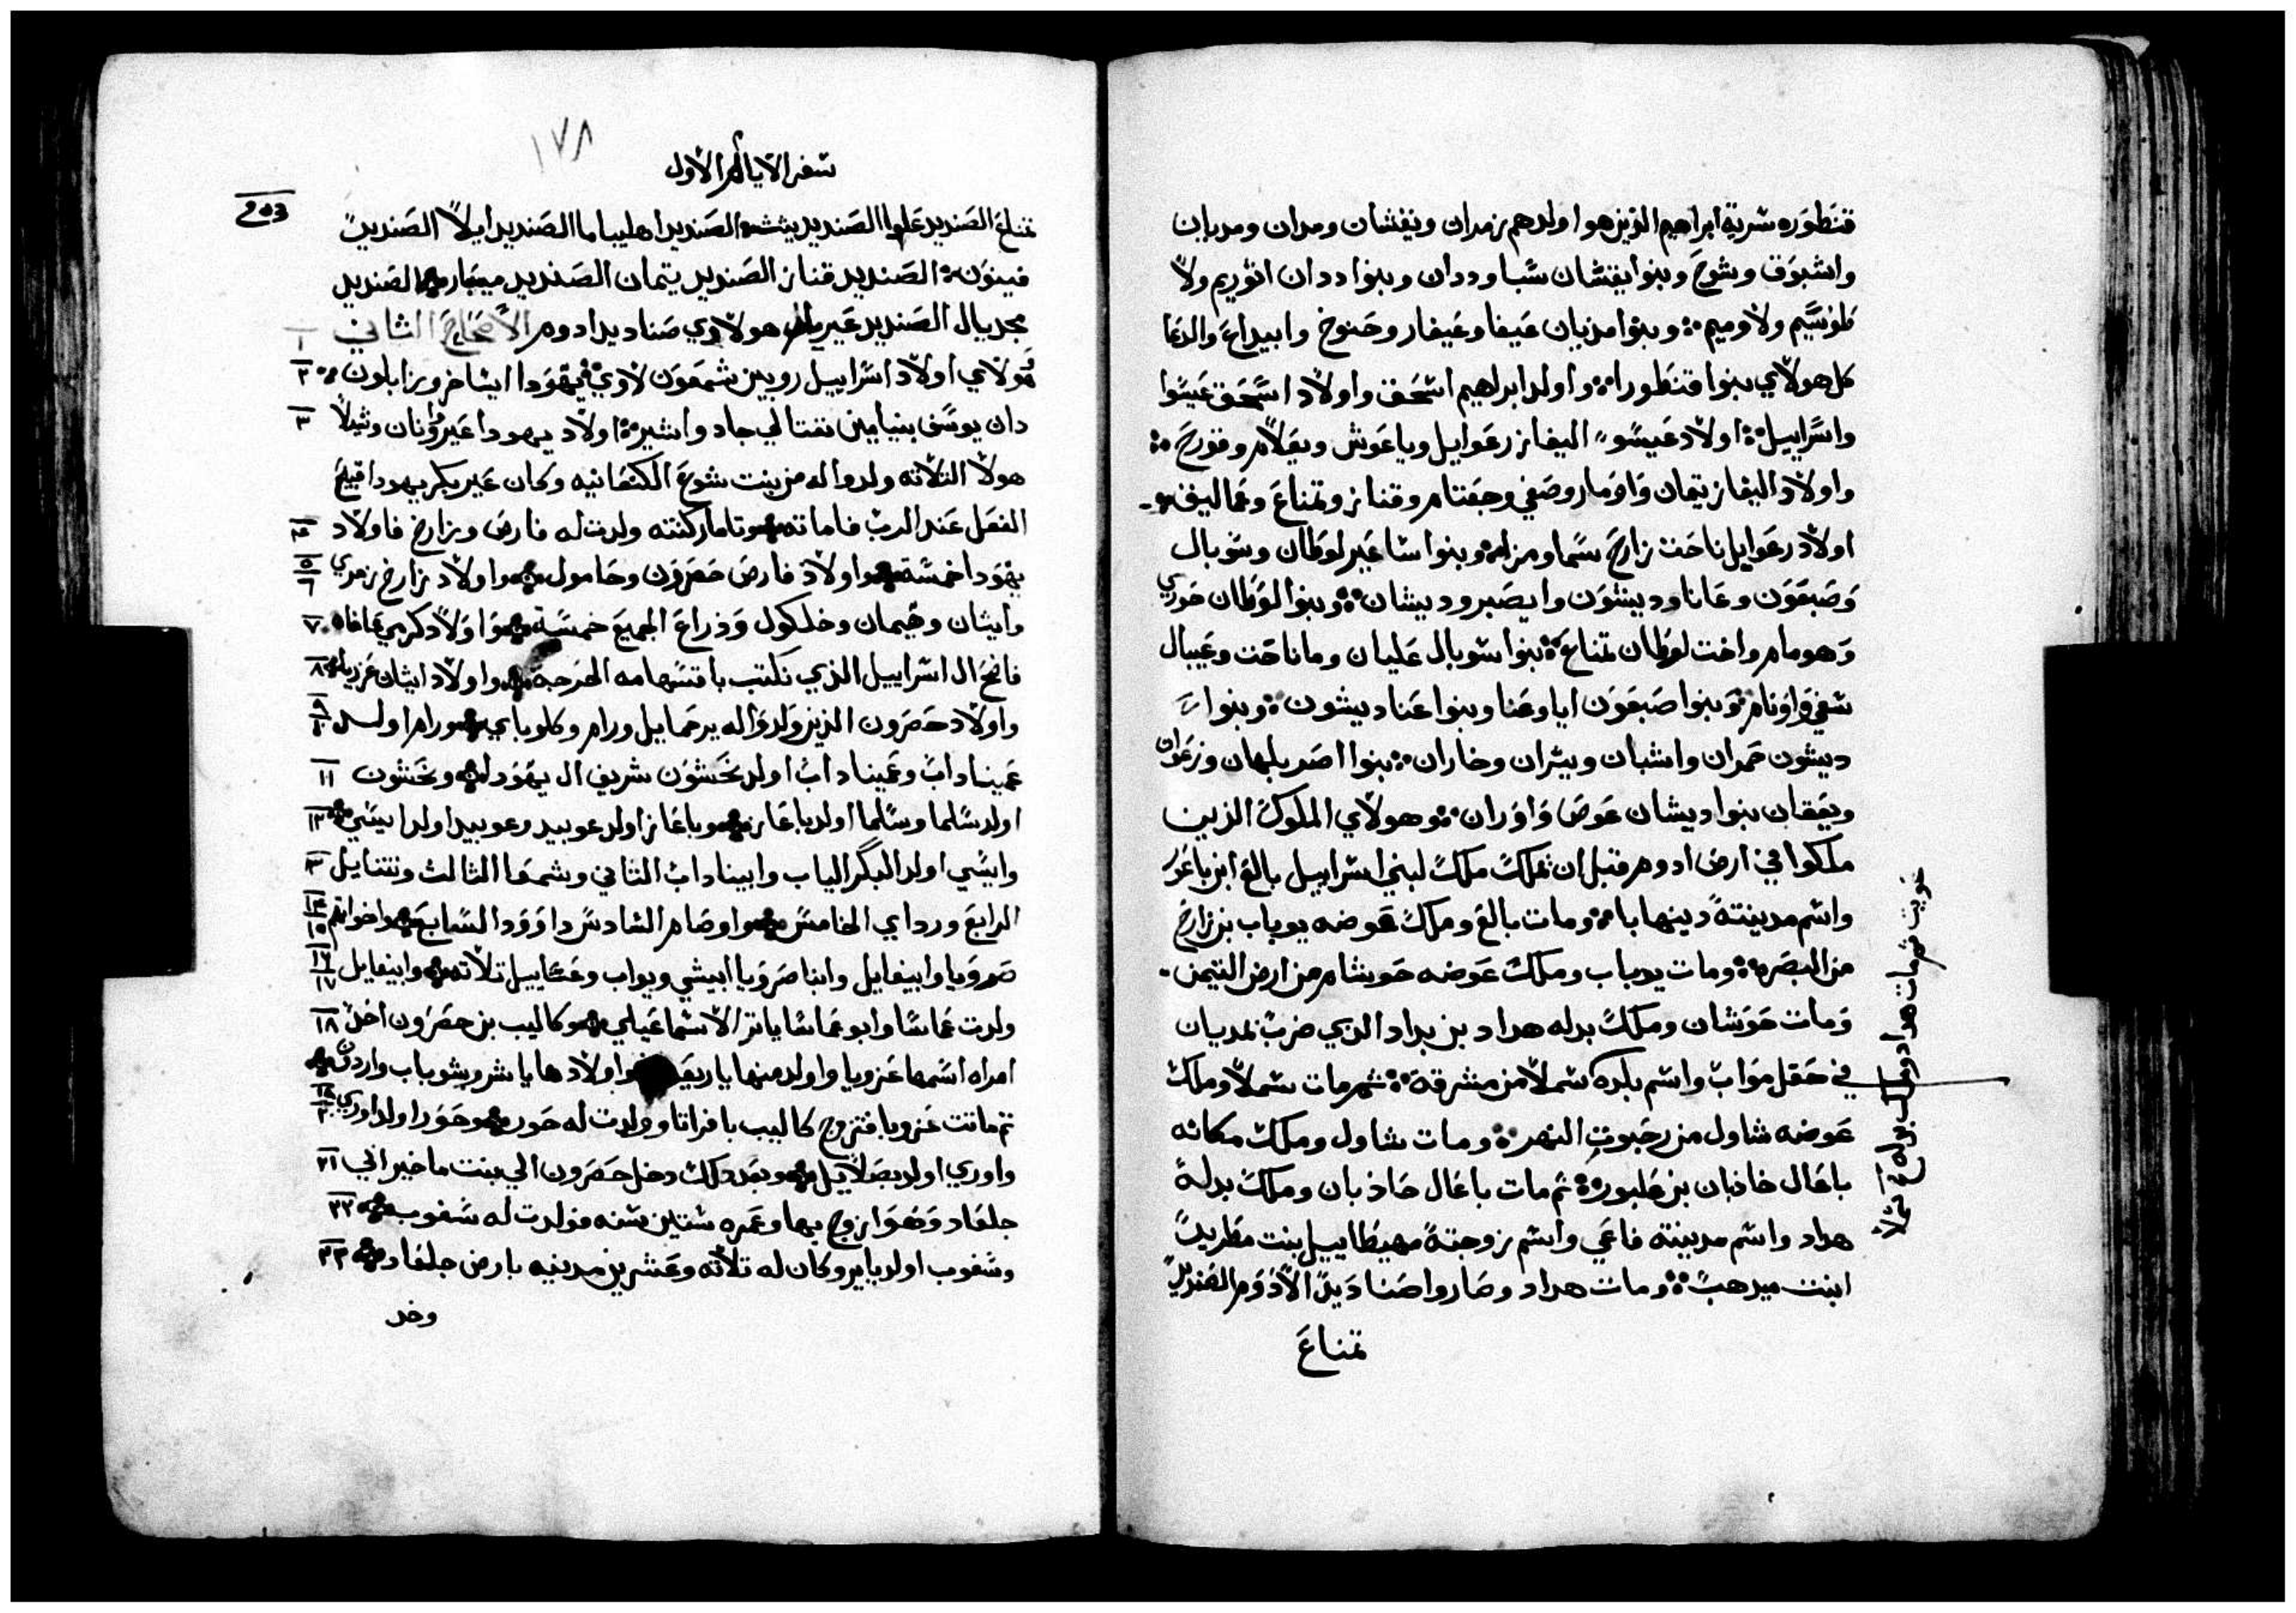 قنطوره سرية ابراهيم الذين هوا اولدهم زمران ويفتشان ومدان ومديان
واشبوق وشوح وبنوا يفتشان شبا وددان وبنوا ددان اثوريم ولا
طوسيم ولاوميم وبنوا مذيان عيفا وعيفار وحنوخ وابيداع والدعا
كل هولاي بنوا قنطورا واولد ابراهيم اسحق واولاد اسحق عيسوا
واسراييل اولاد عيسو اليفاز رعوايل وياعوش ويعلام وقورح
واولاد اليفاز تيمان واومار وصفي وجعثام وقناز وتمناع وعماليق
اولاد رعوايل ناحت زارح سما ومزا وبنوا ساعير لوطان وسوبال
وصبعون وعانا وديشون وايصر وديشان وبنوا لوطان حوري
وهومام واخت لوطان تمناع بنوا شوبال عليان وماناحت وعيبال
شفي واونام وبنوا صبعون ايا وعنا وبنوا عنا ديشون وبنوا
ديشون حمران واشبان ويثران وخاران بنوا اصر بلهان وزعوان
ويعقان بنوا ديشان عوص واوران وهولاي الملوك الذين
ملكوا في ارض ادوم قبل ان تملك ملك لبني اسراييل بالع ابن باعور
واسم مدينته دينهابا ومات بالع وملك عوضه يوباب بن زارح
من البصره ومات يوباب وملك عوضه حوشام من ارض التيمن
ومات حوشان وملك بدله هداد بن بداد الذي ضرب لمديان
في حقل مواب واسم بلده شملا من مشرقة ثم مات شملا وملك
عوضه شاول من رحبوت النهر ومات شاول وملك مكانه
باعال خاذبان بن عكبور ثم مات باعال حاذبان وملك بدله
هداد واسم مدينته فاعي واسم زوجته مهيطاييل بنت مطريد
ابنت ميدهب ومات هداد وصاروا صناديد الادوم الصنديد
تمناع
عويت ثم مات هداد وملك بدله شملا
١٧٨
سفر الايام الاول
تمناع الصنديد علوا الصنديد يثث الصنديد اهليباما الصنديد ايلا الصنديد
فينون الصنديد قناز الصنديد يتمان الصنديد مبصار الصنديد
مجديال الصنديد عيرام هولاي صناديد ادوم الاصحاح الثاني ١
هولاي اولاد اسراييل روبين شمعون لاوي يهودا ايساخر وزابلون ٢
دان يوسف بنيامين نفتالي جاد واشير اولاد يهودا عير واونان وشيلا ٣
هولا التلاته ولدوا له من بنت شوع الكنعانيه وكان عير بكر يهودا قبيح
الفعل عند الرب فاماته وتامار كنته ولدت له فارص وزارخ فاولاد ٤
يهودا خمسة واولاد فارص حصرون وحامول واولاد زارخ زمري ٥ ٦
وايثان وهيمان وخلكول وذراع الجميع خمسة واولاد كرمي عاخار ٧
فاتح ال اسراييل الذي نكتب باقتسامه الحرجة واولاد ايثان عزريا ٨
واولاد حصرون الذين ولدوا له يرحمايل ورام وكلوباي ورام اولد ٩ ١٠
عميناداب وعميناداب اولد نحشون شريف ال يهودا ونحشون ١١
اولد سلما وسلما اولد باعاز وباعاز اولد عوبيد وعوبيد اولد ايسي ١٢
وايسي اولد البكر الياب وابيناداب الثاني وشمعا الثالث ونتنايل ١٣
الرابع ورداي الخامس واوصام السادس داوود السابع واخواتهم ١٤ ١٥
صرويا وابيغايل وابنا صرويا ابيشي ويواب وعساييل تلاته وابيغايل ١٦ ١٧
ولدت عماسا وابو عماسا ياثر الاسماعيلي وكاليب بن حصرون اخذ ١٨
امراه اسمها عزوبا واولد منها ياريعـ واولادها ياشر وشوباب واردن
تم ماتت عزوبا فتزوج كاليب بافراتا وولدت له حور وحور اولد اوري ١٩ ٢٠
واوري اولد بصلاييل وبعد ذلك دخل حصرون الي بنت ماخير ابي ٢١
جلعاد وهوا تزوج بها وعمره ستين سنه فولدت له سغوب ٢٢
وسغوب اولد يابر وكان له تلاته وعشرين مدينيه بارض جلعاد ٢٣
وخد